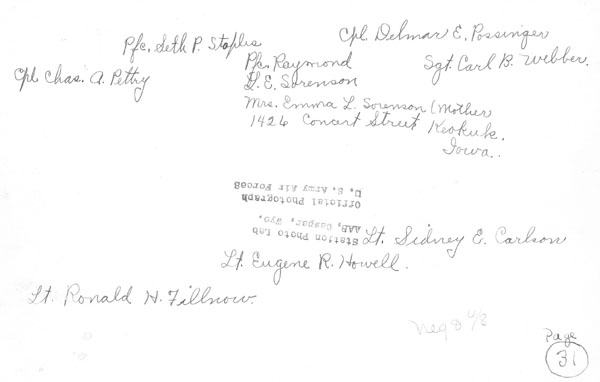 Pfc. Seth P. Staples
Cpl Delmar E. Possinger
Cpl Chas. A. Pettry
Pfc. Raymond
H. E. Sorenson
Sgt. Carl B. Webber.
Mrs. Emma L. Sorenson (Mother
1426 Concert Street Keokuk.
Iowa..
Station Photo Lab
AAB, Casper, Wyo.
Official Photograph
U. S. Army Air Forces
Lt. Sidney E. Carlson
Lt. Eugene R. Howell.
Lt. Ronald H. Fillnow.
Neg
Page
31